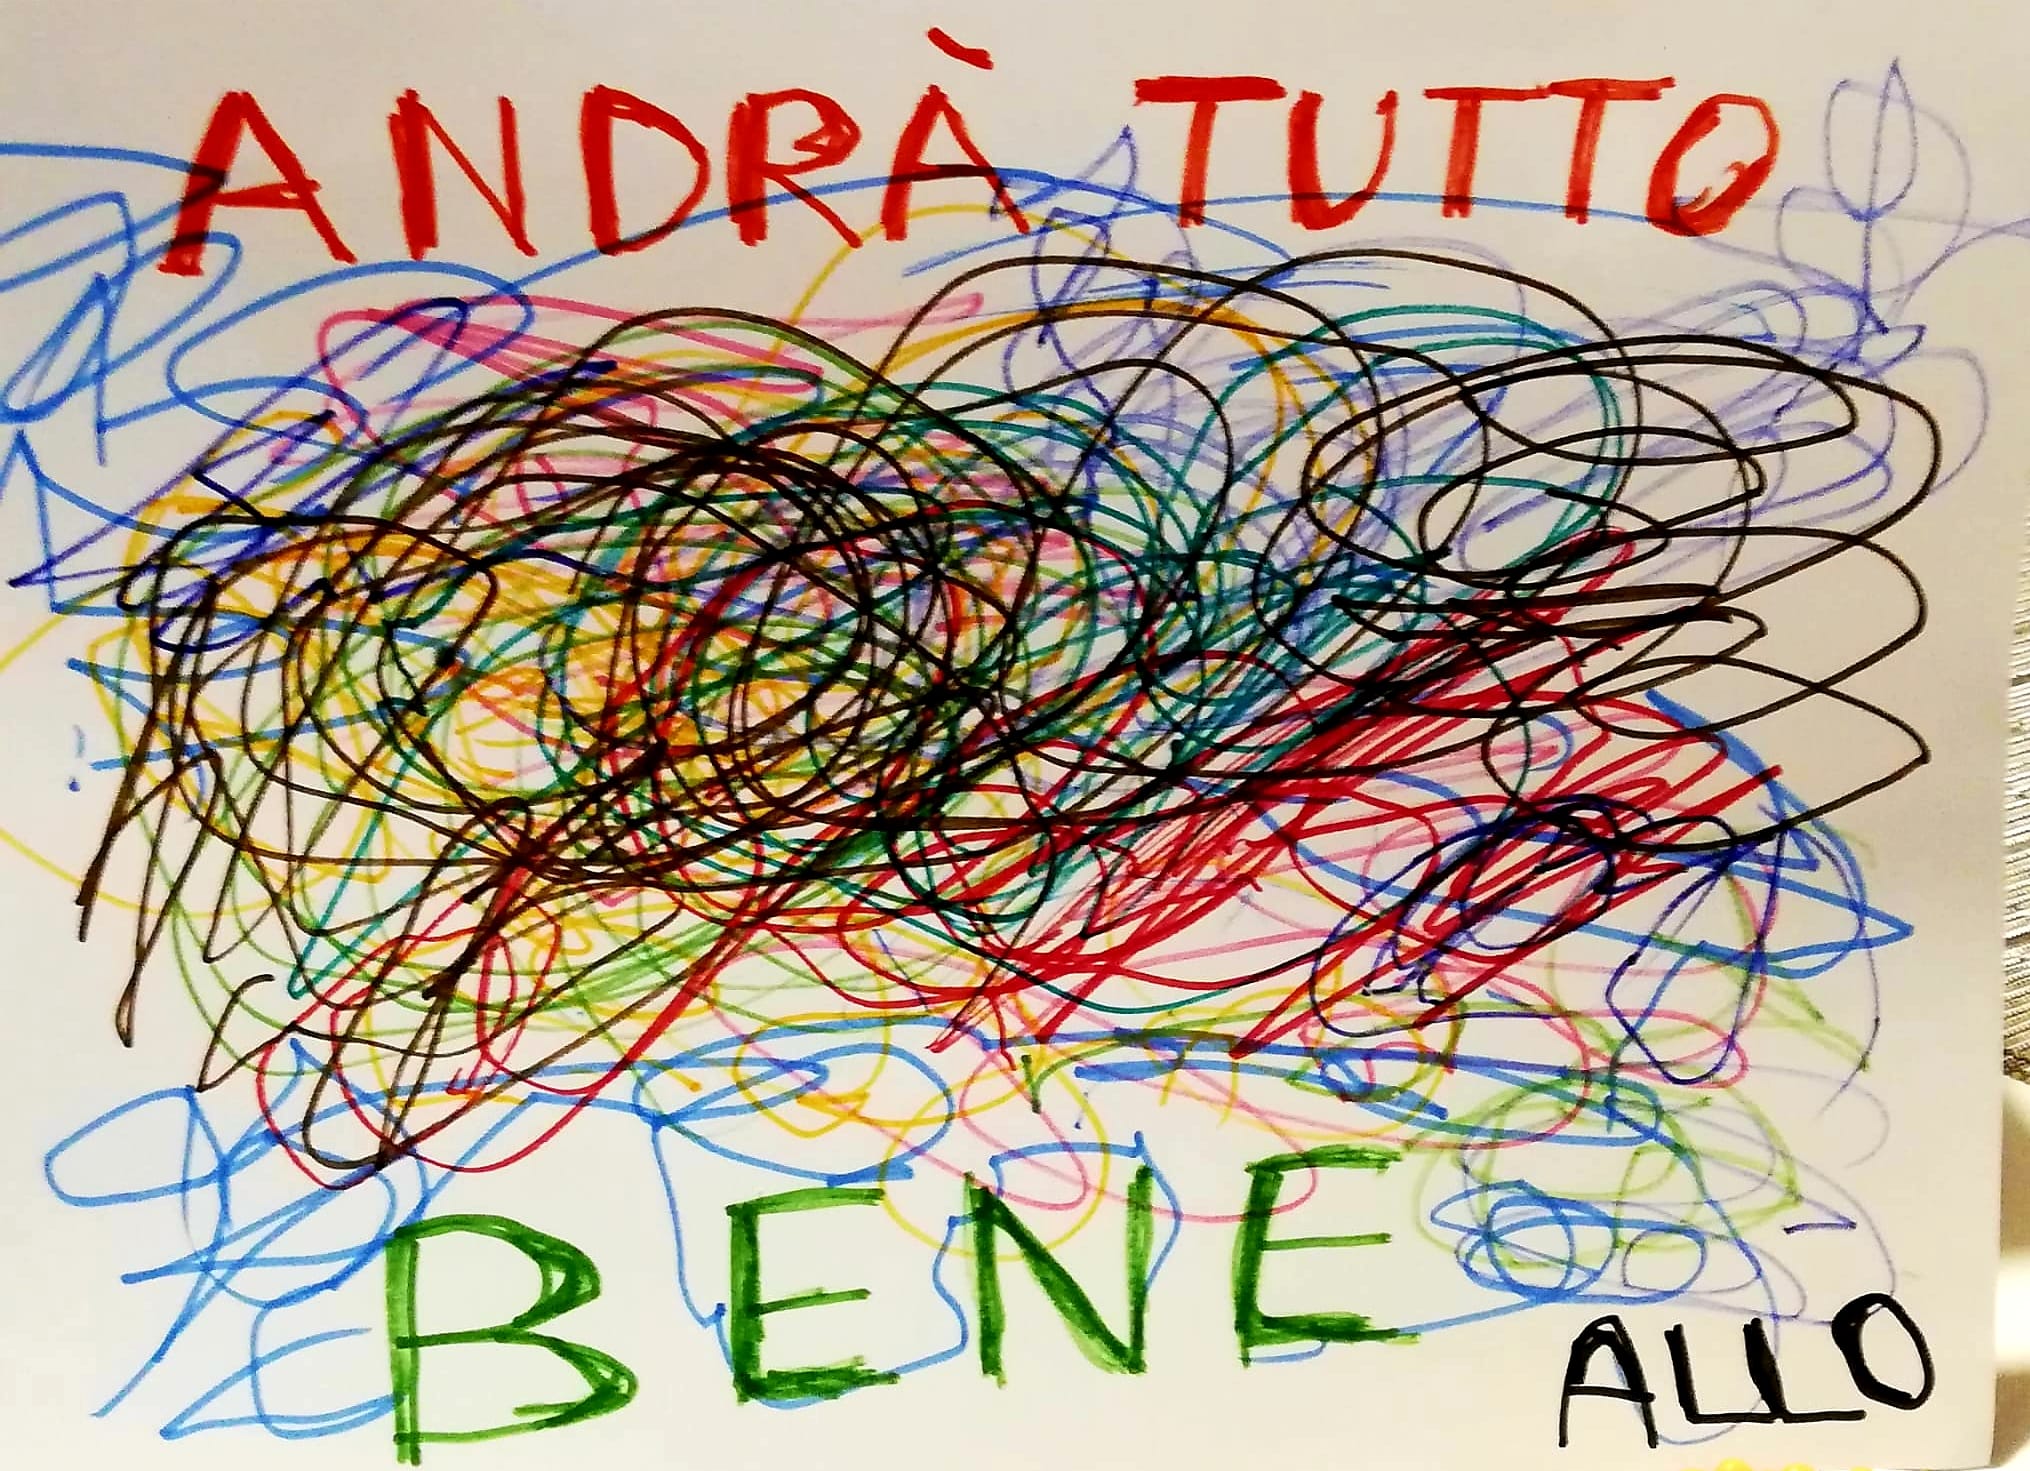 ANDRÀ TUTTO
BENE
ALLO